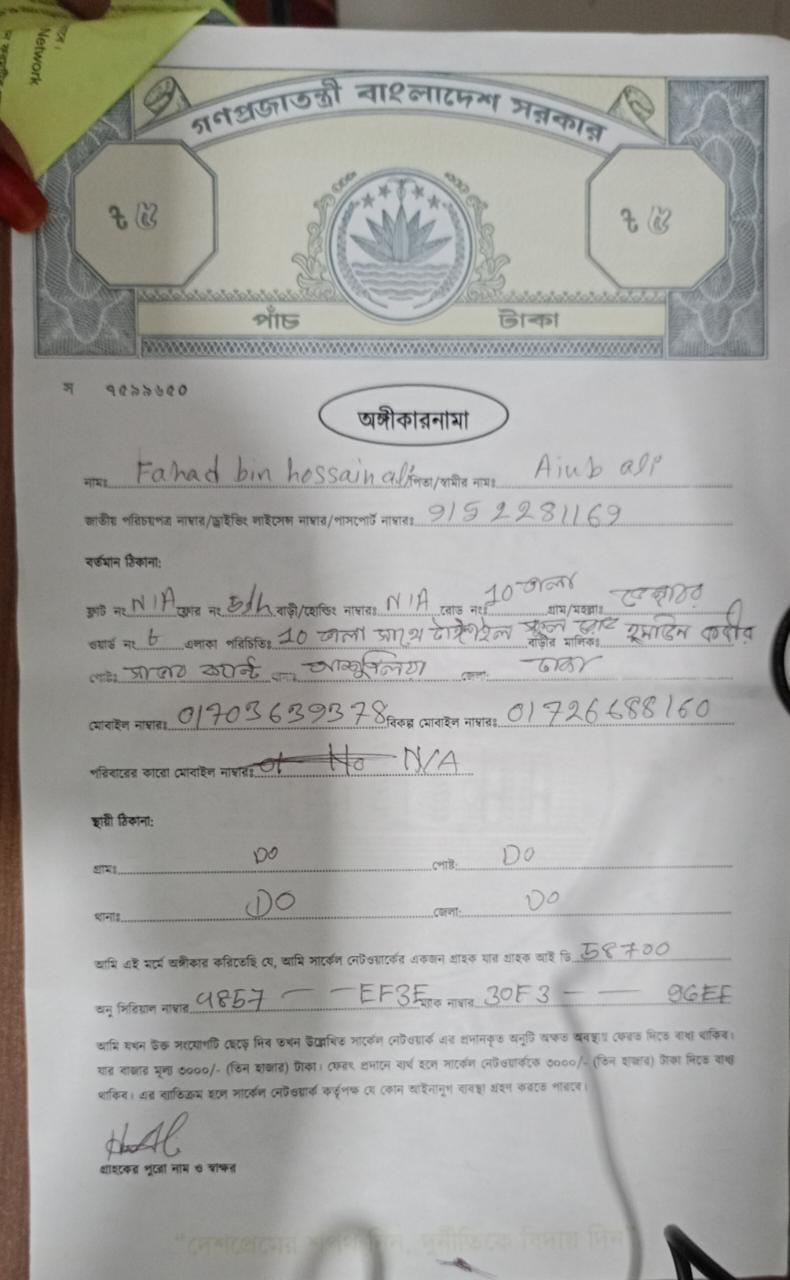 Network
গণপ্রজাতন্ত্রী বাংলাদেশ সরকার
৳ ৫ ৳ ৫
পাঁচ টাকা
স ৭৫৯৯৬৫০
অঙ্গীকারনামা
নামঃ Fahad bin hossain ali পিতা/স্বামীর নামঃ Aiub ali
জাতীয় পরিচয়পত্র নাম্বার/ড্রাইভিং লাইসেন্স নাম্বার/পাসপোর্ট নাম্বারঃ 9152281169
বর্তমান ঠিকানা:
ফ্লাট নং N/A ফ্লোর নং 5th বাড়ী/হোল্ডিং নাম্বারঃ N/A রোড নংঃ 10 তলা গ্রাম/মহল্লাঃ
ওয়ার্ড নং 6 এলাকা পরিচিতিঃ 10 তলা সাথে বাড়ীর মালিকঃ কবীর
পোষ্টঃ থানাঃ আশুলিয়া জেলা: ঢাকা
মোবাইল নাম্বারঃ 01703639378 বিকল্প মোবাইল নাম্বারঃ 01726688160
পরিবারের কারো মোবাইল নাম্বারঃ No N/A
স্থায়ী ঠিকানা:
গ্রামঃ DO পোষ্ট: DO
থানাঃ DO জেলা: DO
আমি এই মর্মে অঙ্গীকার করিতেছি যে, আমি সার্কেল নেটওয়ার্কের একজন গ্রাহক যার গ্রাহক আই ডি 58700
অনু সিরিয়াল নাম্বার 9857 — — EF3E ম্যাক নাম্বার 30F3 — — 96EE
আমি যখন উক্ত সংযোগটি ছেড়ে দিব তখন উল্লেখিত সার্কেল নেটওয়ার্ক এর প্রদানকৃত অনুটি অক্ষত অবস্থায় ফেরত দিতে বাধ্য থাকিব।
যার বাজার মূল্য ৩০০০/- (তিন হাজার) টাকা। ফেরৎ প্রদানে ব্যর্থ হলে সার্কেল নেটওয়ার্ককে ৩০০০/- (তিন হাজার) টাকা দিতে বাধ্য
থাকিব। এর ব্যতিক্রম হলে সার্কেল নেটওয়ার্ক কর্তৃপক্ষ যে কোন আইনানুগ ব্যবস্থা গ্রহণ করতে পারবে।
গ্রাহকের পুরো নাম ও স্বাক্ষর
"দেশপ্রেমের শপথ নিন, দুর্নীতিকে বিদায় দিন"